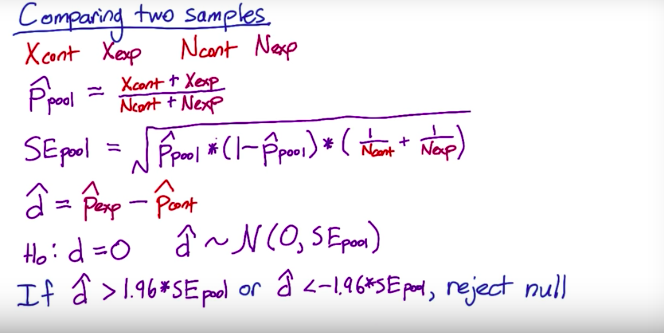 Comparing two samples
Xcont Xexp Ncont Nexp
P̂pool = Xcont + Xexp / Ncont + Nexp
SEpool = √P̂pool * (1-P̂pool) * (1/Ncont + 1/Nexp)
d̂ = P̂exp - P̂cont
H₀: d = 0 d̂ ~ N(0, SEpool)
If d̂ > 1.96*SEpool or d̂ < -1.96*SEpool, reject null